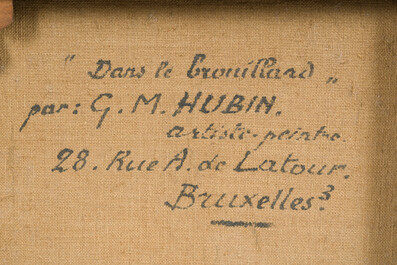 " Dans le brouillard "
par: G. M. HUBIN.
artiste-peintre.
28. Rue A. de Latour.
Bruxelles.3